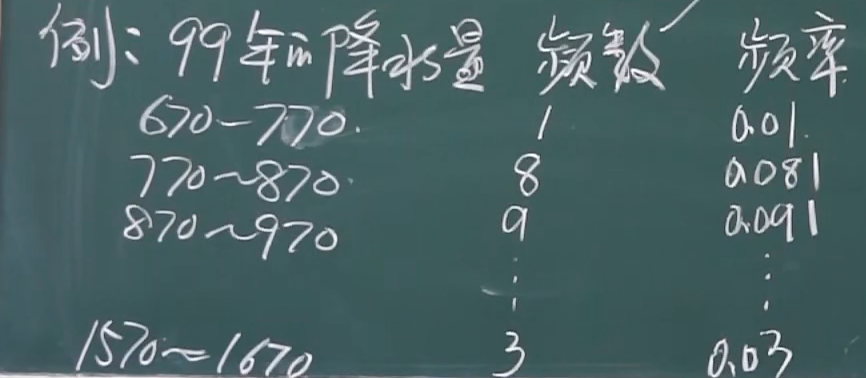 例:99年的降水量 频数 频率
670-770. 1 0.01.
770~870. 8 0.081
870~970 9 0.091
⋮ ⋮
1570~1670 3 0.03